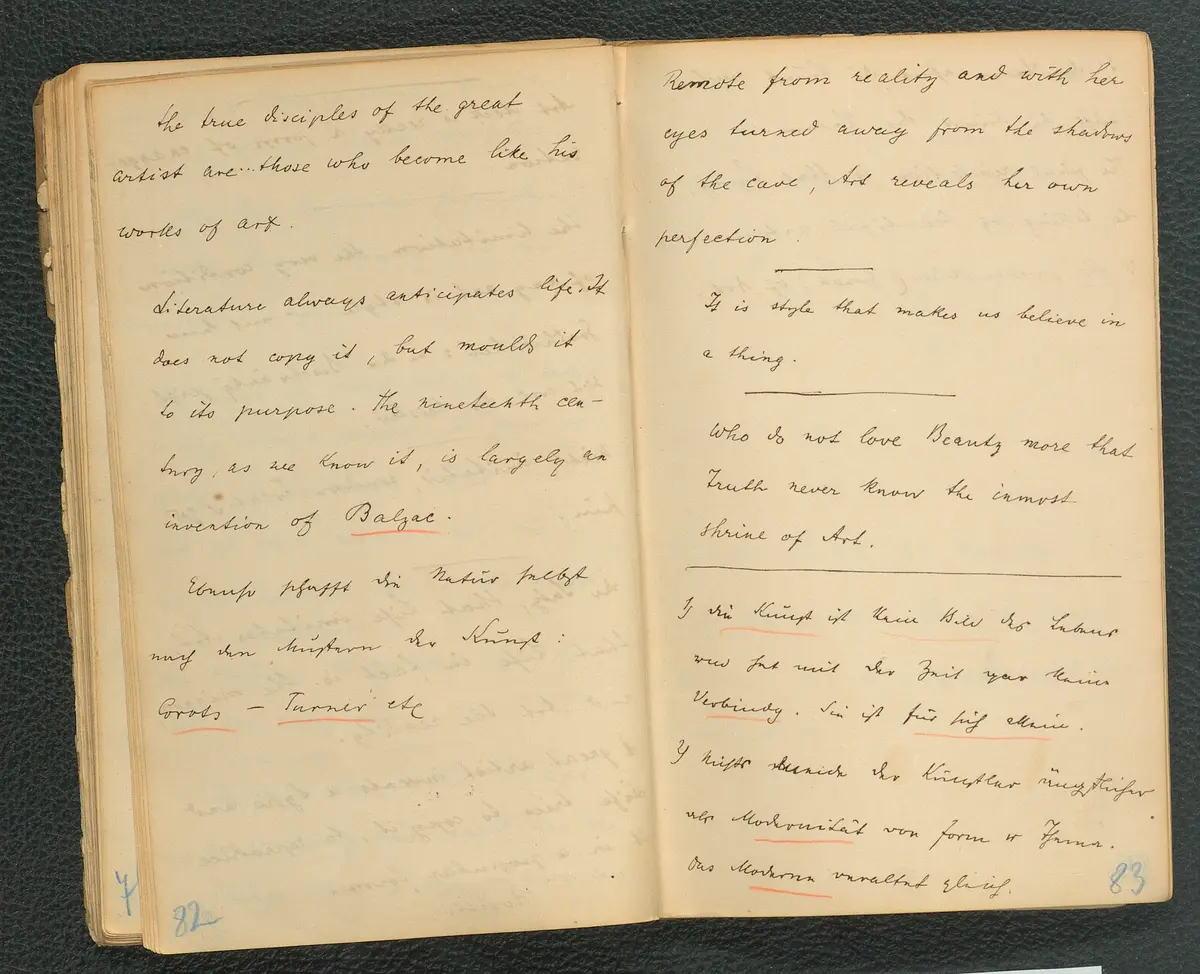 the true disciples of the great
artist are... those who become like his
works of art.
Literature always anticipates life. It
does not copy it, but moulds it
to its purpose. The nineteehth cen-
tury, as we know it, is largely an
invention of Balzac.
Ebenso schafft die Natur selbst
nach den Mustern der Kunst:
Corots — Turner etc
7
82
Remote from reality and with her
eyes turned away from the shadows
of the cave, Art reveals her own
perfection.
It is style that makes us believe in
a thing.
Who do not love Beauty more that
Truth never know the inmost
shrine of Art.
1) die Kunst ist kein Bild des Lebens
und hat mit der Zeit gar keine
Verbindg. Sie ist für sich allein.
2) Nichts meide der Künstler ängstlicher
als Modernität von Form u Thema.
Das Moderne veraltet gleich.
83